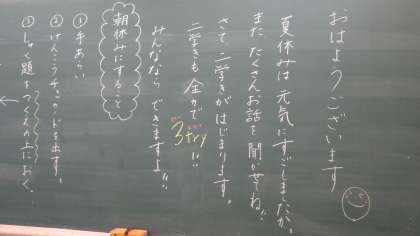 おはようございます
夏休みは元気にすごしましたか。
また たくさんお話を聞かせてね!!
さて 二学きがはじまります。
二学きも 全力で 3try!!
みんななら できますよ!!
朝休みにすること
①手あらい
②けんこうチェックカードを出す。
③しゅく題をつくえの上におく。